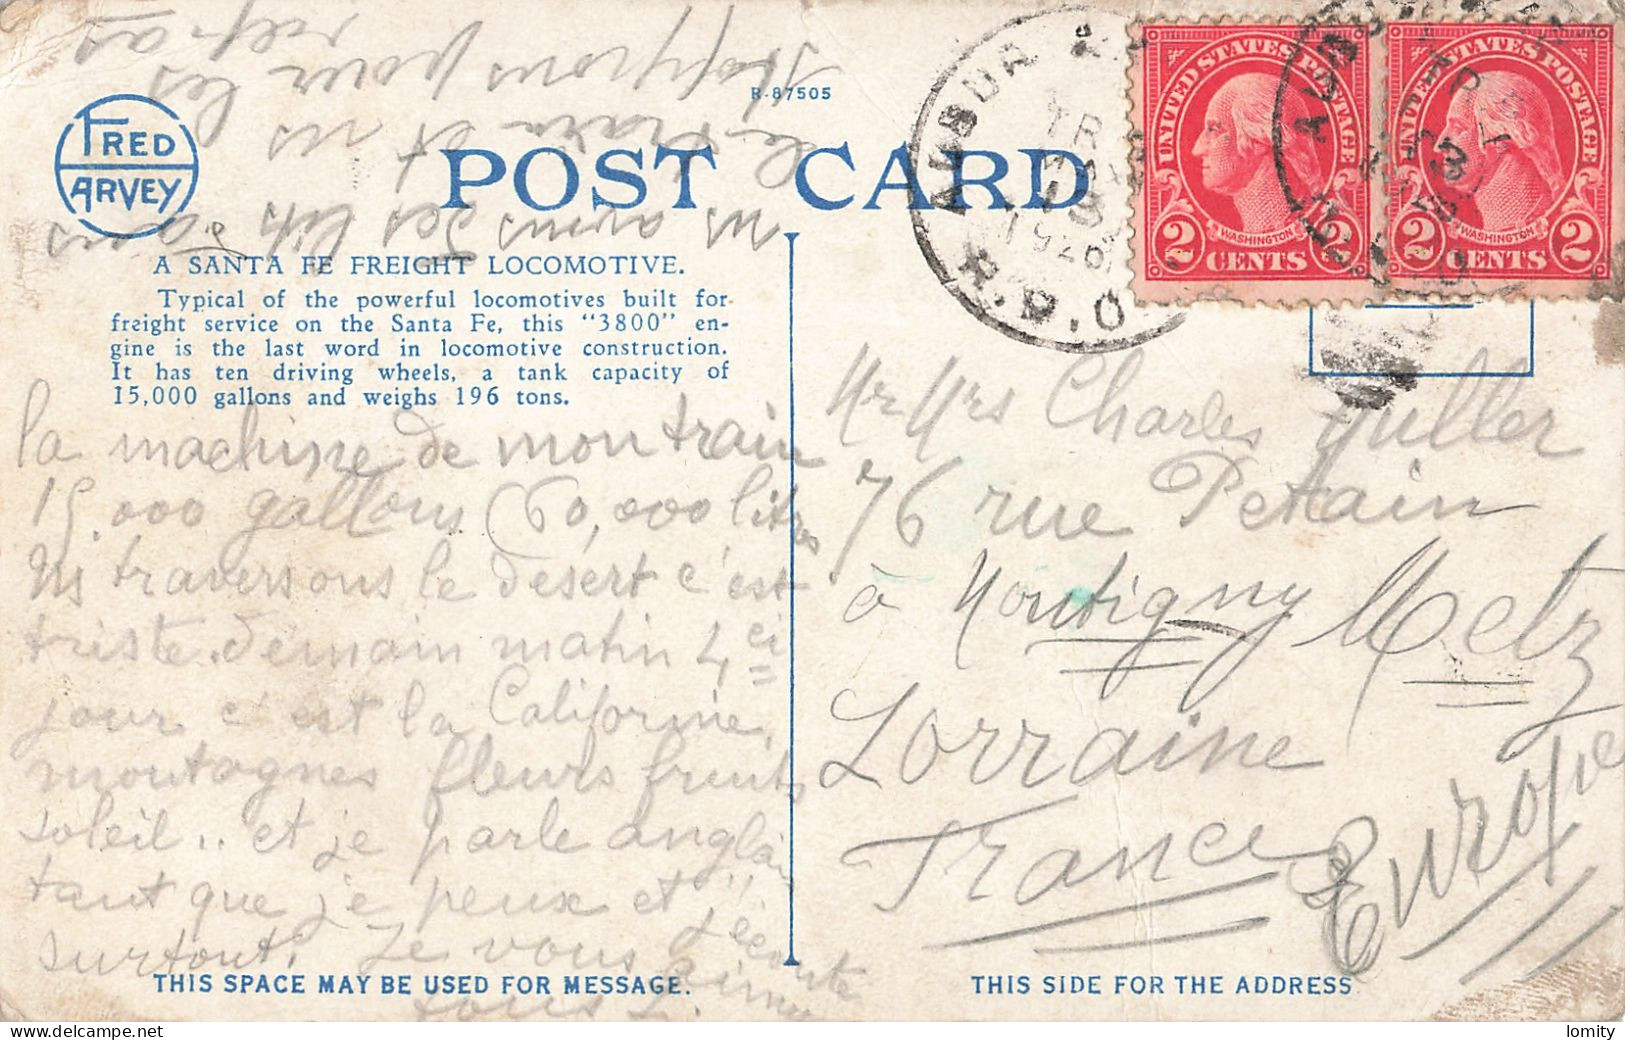 FRED
HARVEY
R-87505
POST CARD
A SANTA FE FREIGHT LOCOMOTIVE.
Typical of the powerful locomotives built for
freight service on the Santa Fe, this "3800" en-
gine is the last word in locomotive construction.
It has ten driving wheels, a tank capacity of
15,000 gallons and weighs 196 tons.
la machine de mon train
15.000 gallons (60,000 litres
ns traversons le désert c'est
triste. demain matin 4 ci
jour c'est la Californie,
montagnes fleurs fruits
soleil .. et je parle anglais
tant que je peux et j'écoute
surtout. Je vous aime
tous L.
ns avons des lits dans
le train et ns
stoppons pour les
repas
THIS SPACE MAY BE USED FOR MESSAGE.
ALBUQ
TR
1926
R.P.O
UNITED STATES POSTAGE
WASHINGTON
2 CENTS 2
UNITED STATES POSTAGE
WASHINGTON
2 CENTS 2
Mr Mrs Charles Muller
76 rue Petain
à Montigny Metz
Lorraine
France
Europe
THIS SIDE FOR THE ADDRESS
delcampe.net
lomity